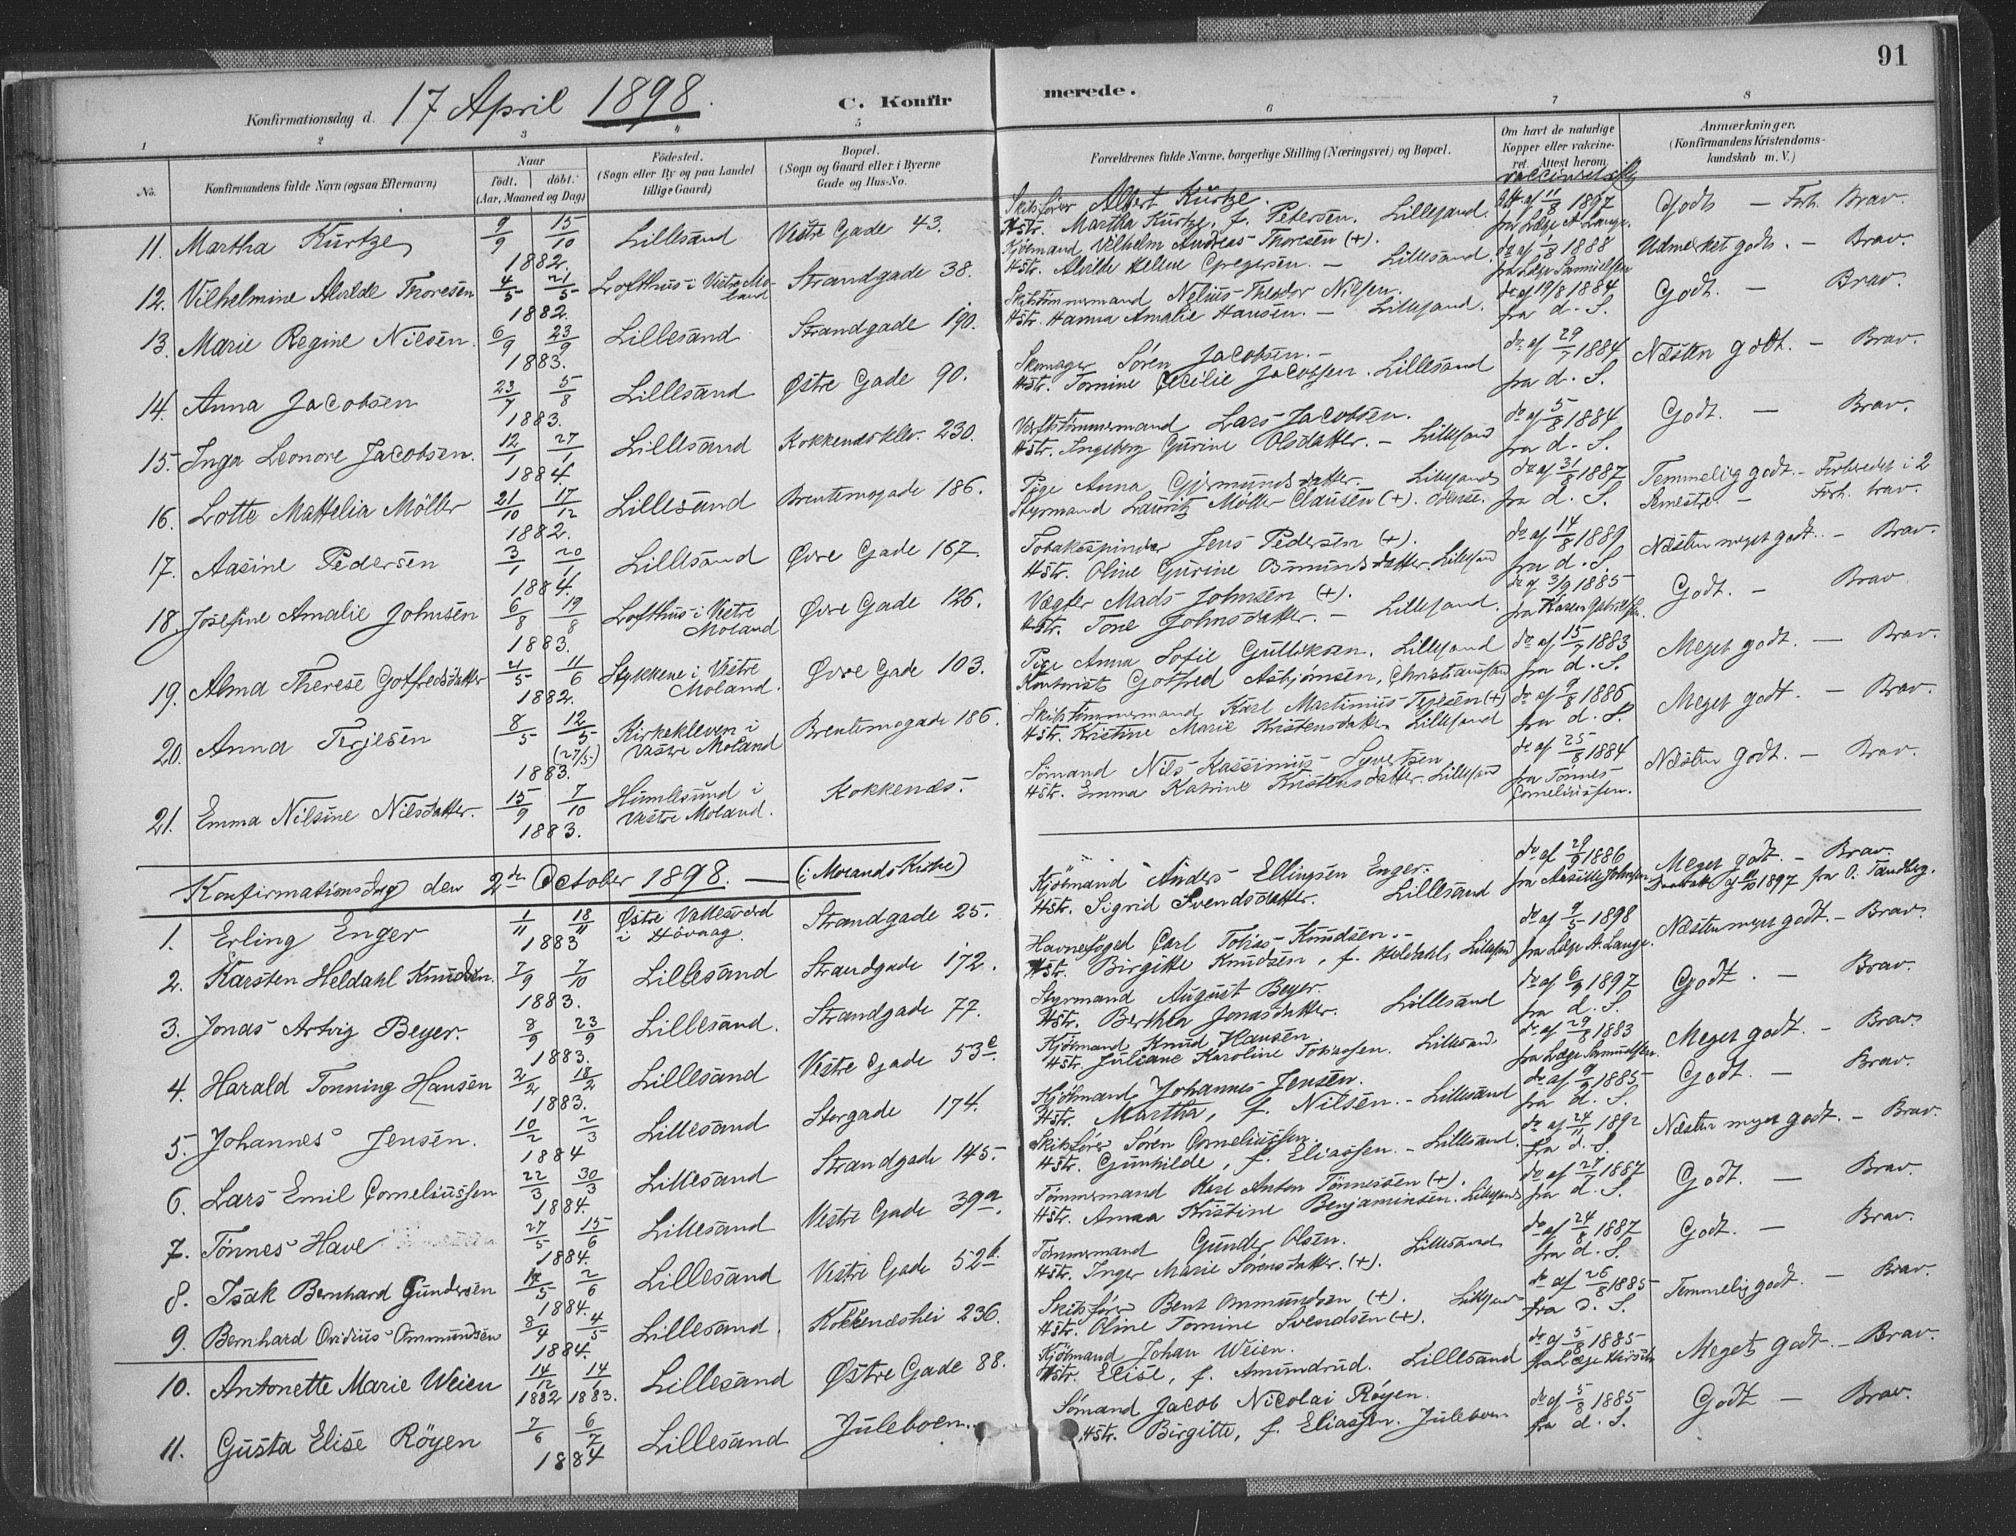 91
Konfirmationsdag d. 17 April 1898. C. Konfirmerede.
1 2 3 4 5 6 7 8
No. Konfirmandens fulde Navn (ogsaa Efternavn) Naar født. døbt. (Aar, Maaned og Dag) Fødested. (Sogn eller By og paa Landet tillige Gaard) Bopæl. (Sogn og Gaard eller i Byerne Gade og Hus-No. Forældrenes fulde Navne, borgerlige Stilling (Næringsvei) og Bopæl. Om havt de naturlige Kopper eller vaccineret. Attest herom Anmærkninger. (Konfirmandens Kristendomskundskab m. V.)
11. Martha Kurtze 9/9 15/10 1882. Lillesand Vestre Gade 43. Skibsfører Albert Kurtze. Hstr. Martha Kurtze, f. Petersen. Lillesand. 11/8 1897 fra Læge A. Lange. Godt — Forh. Brav.
12. Vilhelmine Alvilde Thoresen 4/5 21/5 1882. Lofthus i Vestre Moland Strandgade 38. Kjømand Vilhelm Andreas Thoresen (+). Hstr. Alvilde Helene Gregersen. — Lillesand. 1888 fra Læge Samuelsen Udmerket godt. — Brav.
13. Marie Regine Nilsen. 6/9 23/9 1883. Lillesand Strandgade 190. Skibstømmermand Nelius Theodor Nilsen. Hstr. Hanna Amalie Hansen. — Lillesand. do af 19/8 1884 fra d. S. Godt. — Brav.
14. Anna Jacobsen 23/7 5/8 1883. Lillesand Østre Gade 90. Skomager Søren Jacobsen. — Hstr. Tomine Cecilie Jacobsen. Lillesand do af 29/7 1884 fra d. S. Næsten godt. — Brav.
15. Inga Leonore Jacobsen. 12/1 27/1 1884. Lillesand Kokkenesklev. 230. Værftstømmermand Lars Jacobsen. Hstr. Ingeborg Gurine Olsdatter. — Lillesand do af 5/8 1884 fra d. S. Godt. — Brav.
16. Lotte Mattelia Möller 21/10 17/12 1882. Lillesand Brentemogade 186. Pige Anna Gjermundsdatter. Lillesand Styrmand Lauritz Möller Clausen (+). do af 31/8 1887 fra d. S. Temmelig godt. — Forberedet i 2 Semestre. — Forh. brav.
17. Aasine Pedersen 3/1 20/1 1884. Lillesand Øvre Gade 167. Tobakspinder Jens Pedersen (+). Hstr. Oline Gurine Omundsdatter. Lillesand do af 14/8 1889 fra d. S. Næsten meget godt. — Brav.
18. Josefine Amalie Johnsen 6/8 19/8 1883. Lofthus i Vestre Moland Øvre Gade 126. Vægter Mads Johnsen (+). Hstr. Tone Johnsdatter. — Lillesand. do af 3/9 1885 fra Karen Gabrielsen. Godt. — Brav.
19. Alma Therese Gotfredsdatter 21/5 11/6 1882. Stykkene i Vestre Moland. Øvre Gade 103. Pige Anna Sofie Gulliksen. Lillesand Kontorist Gotfred Asbjørnsen, Christianssand do af 15/7 1883 fra d. S. Meget godt. — Brav.
20. Anna Terjesen 8/5 12/5 (27/5) 1883. Kirkekleven i Vestre Moland Brentemogade 186. Skibstømmermand Karl Martinius Terjesen (+) Hstr. Kristine Marie Kristensdatter Lillesand do af 9/8 1886 fra d. S. Meget godt. — Brav.
21. Emma Nilsine Nilsdatter. 15/9 7/10 1883. Humlesund i Vestre Moland. Kokkenes. Sømand Nils Kassimius Syvertsen Hstr. Emma Katrine Kristensdatter. Lillesand do af 25/8 1884 fra Tønnes Corneliussen. Næsten godt. — Brav.
Konfirmationsdag den 2den October 1898. — (i Morands Kirke)
1. Erling Enger 1/11 18/11 1883 Østre Vallesværd i Høvaag. Strandgade 25. Kjøbmand Anders Ellingsen Enger. Hstr. Sigrid Svendsdatter. Lillesand do af 29/9 1886 fra Aasille Johnsen Meget godt. — Brav. 1897 fra O. Tandberg.
2. Karsten Heldahl Knudsen. 7/9 7/10 1883. Lillesand Strandgade 172. Havnefoged Carl Tobias Knudsen. — Hstr. Birgitte Knudsen, f. Heldahl, Lillesand do af 9/5 1898 fra Læge A. Lange. Næsten meget godt. — Brav.
3. Jonas Artvig Beyer. 8/9 23/9 1883. Lillesand. Strandgade 77. Styrmand August Beyer. Hstr. Berthea Jonasdatter. Lillesand do af 6/9 1897 fra d. S. Godt. — Brav.
4. Harald Tonning Hansen 2/2 18/2 1883. Lillesand Vestre Gade 53c. Kjøbmand Knud Hansen Hstr. Juliane Karoline Tobiassen. Lillesand. do af 29/8 1883 fra Læge Samuelsen. Meget godt. — Brav.
5. Johannes Jensen. 10/2 2/3 1884 Lillesand Storgade 174. Kjøbmand Johannes Jensen. Hstr. Martha, f. Nilsen. — Lillesand do af 9/9 1885 fra d. S. Godt. — Brav.
6. Lars Emil Corneliussen 22/3 30/3 1884. Lillesand Strandgade 145. Skibsfører Søren Corneliussen. Hstr. Gunhilde, f. Eliassen. — Lillesand. do af 24/1 1892 fra d. S. Næsten meget godt. — Brav.
7. Tönnes Have 27/5 15/6 1884. Lillesand Vestre Gade 39a. Tømmermand Karl Anton Tønnessen (+). Hstr. Anna Kristine Benjaminsen. Lillesand do af 27/7 1887 fra d. S. Godt. — Brav.
8. Isak Bernhard Gundersen 12/5 2/6 1884. Lillesand Vestre Gade 52b. Tømmermand Gunder Olsen. Hstr. Inger Marie Sørensdatter. (+). Lillesand do af 24/8 1887 fra d. S. Godt. — Brav.
9. Bernhard Ovidius Ommundsen 8/4 4/5 1884. Lillesand. Kokkeneshei 236. Skibsfører Bent Ommundsen (+). Hstr. Oline Tomine Svendsen (+). Lillesand do af 26/8 1885 fra d. S. Temmelig godt. — Brav.
10. Antonette Marie Weien 14/12 1882 14/1 1883. Lillesand Østre Gade 88. Kjøbmand Johan Weien. Hstr. Elise, f. Amundrud. Lillesand do af 5/8 1885 fra Læge Hirsch Meget godt. — Brav.
11. Gusta Elise Röyen 7/6 6/7 1884 Lillesand Juleboen. Sømand Jacob Nicolai Røyen. Hstr. Birgitte, f. Eliassen. Juleboen do af 5/8 1885 fra d. S. Godt — Brav.